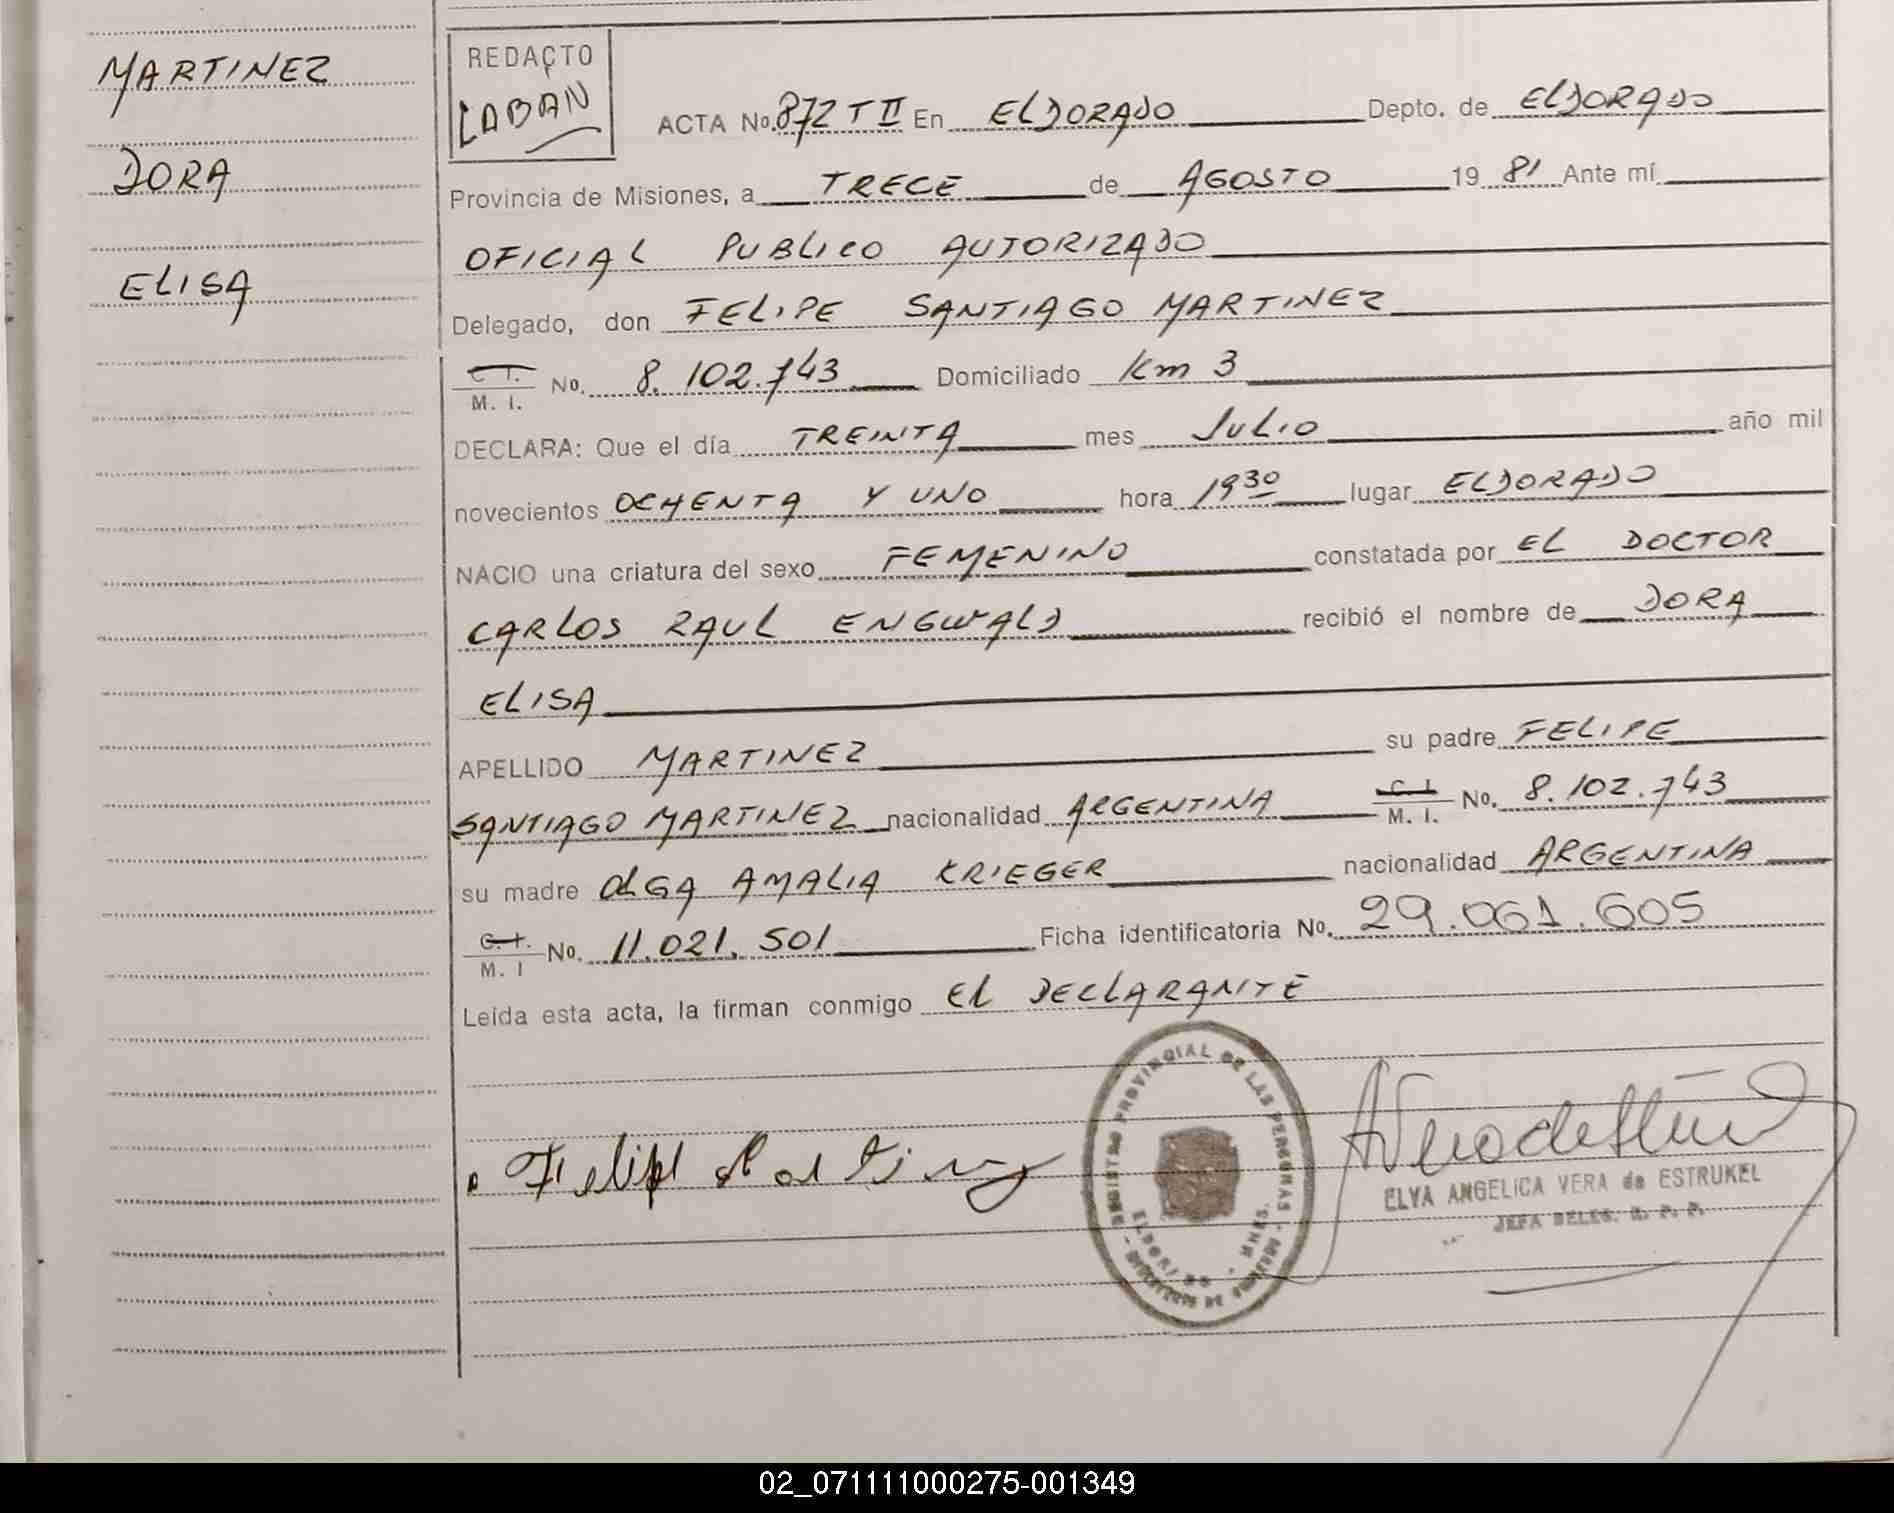 MARTINEZ
DORA
ELISA
REDACTO
LABAN
ACTA No. 872 T II En ELDORADO Depto. de ELDORADO
Provincia de Misiones, a TRECE de AGOSTO 19 81 Ante mí
OFICIAL PUBLICO AUTORIZADO
Delegado, don FELIPE SANTIAGO MARTINEZ
C I. M. I. No. 8.102.743 Domiciliado Km 3
DECLARA: Que el día TREINTA mes JULIO año mil
novecientos OCHENTA Y UNO hora 19 30 lugar ELDORADO
NACIO una criatura del sexo FEMENINO constatada por EL DOCTOR
CARLOS RAUL ENGWALD recibió el nombre de DORA
ELISA
APELLIDO MARTINEZ su padre FELIPE
SANTIAGO MARTINEZ nacionalidad ARGENTINA C. I. M. I. No. 8.102.743
su madre OLGA AMALIA KRIEGER nacionalidad ARGENTINA
C. I. M. I No. 11.021.501 Ficha identificatoria No. 29.061.605
Leída esta acta, la firman conmigo EL DECLARANTE
REGISTRO PROVINCIAL DE LAS PERSONAS
ELDORADO
Felipe Martinez
ELVA ANGELICA VERA de ESTRUKEL
JEFA DELEG. R. P. P.
02_071111000275-001349